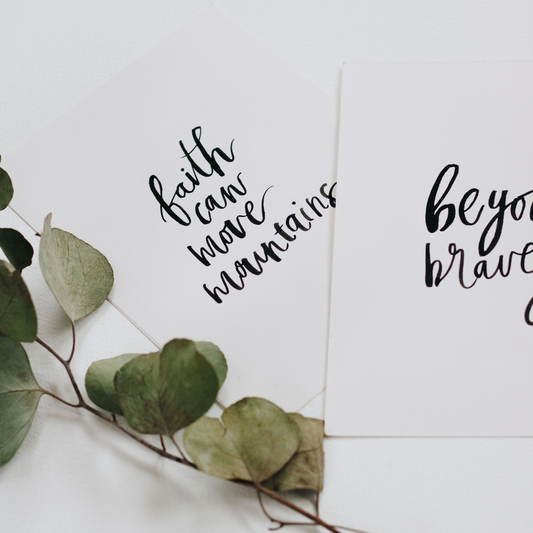 faith
can
move
mountains
be
brave